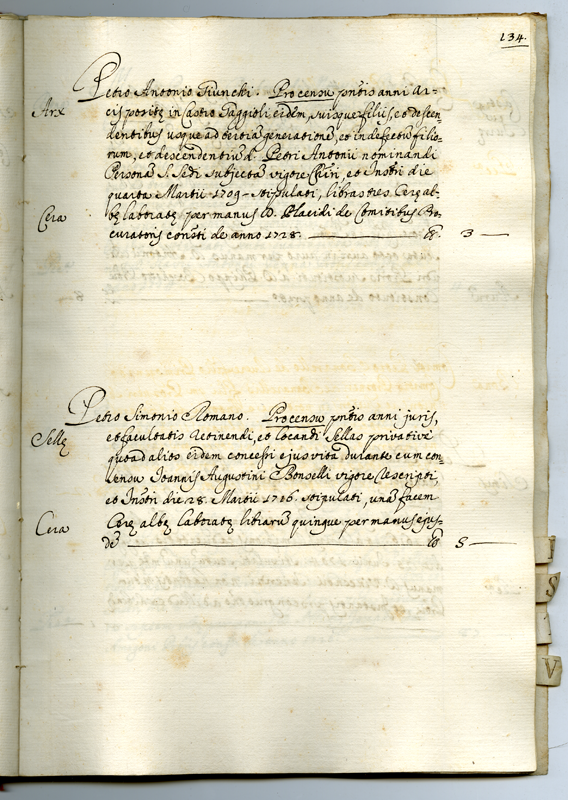 134.
Petro Antonio Giuncki. Pro censu pñtis anni Ar-
Arx
cis positæ in Castro Gaggioli eidem, suisque filiis, et descen
dentibus usque ad tertiã generatione, et in defectu filio-
rum, et descendentiu d. Petri Antonii nominandi
Persona S. Sedi subjecta vigore Chiri, et Instri die
quarta Martii 1709 stipulati, libras tres Ceræ al-
Cera
bæ laboratæ per manus D. Placidi de Comitibus Pro-
curatoris consti de anno 1728. ℔. 3 —
Petro Simonio Romano. Pro censu pñtis anni juris,
Sellæ
et facultatis retinendi, et locandi sellas privative
quoad alios eidem concessi ejus vita durante cum con-
sensu Joannis Augustini Bonselli vigore Rescripti,
et Instri die 28. Martii 1716. stipulati, unã facem
Cera
Ceræ albæ laboratæ librarũ quinque per manus ejus-
dẽ ℔ 5 —
S
V